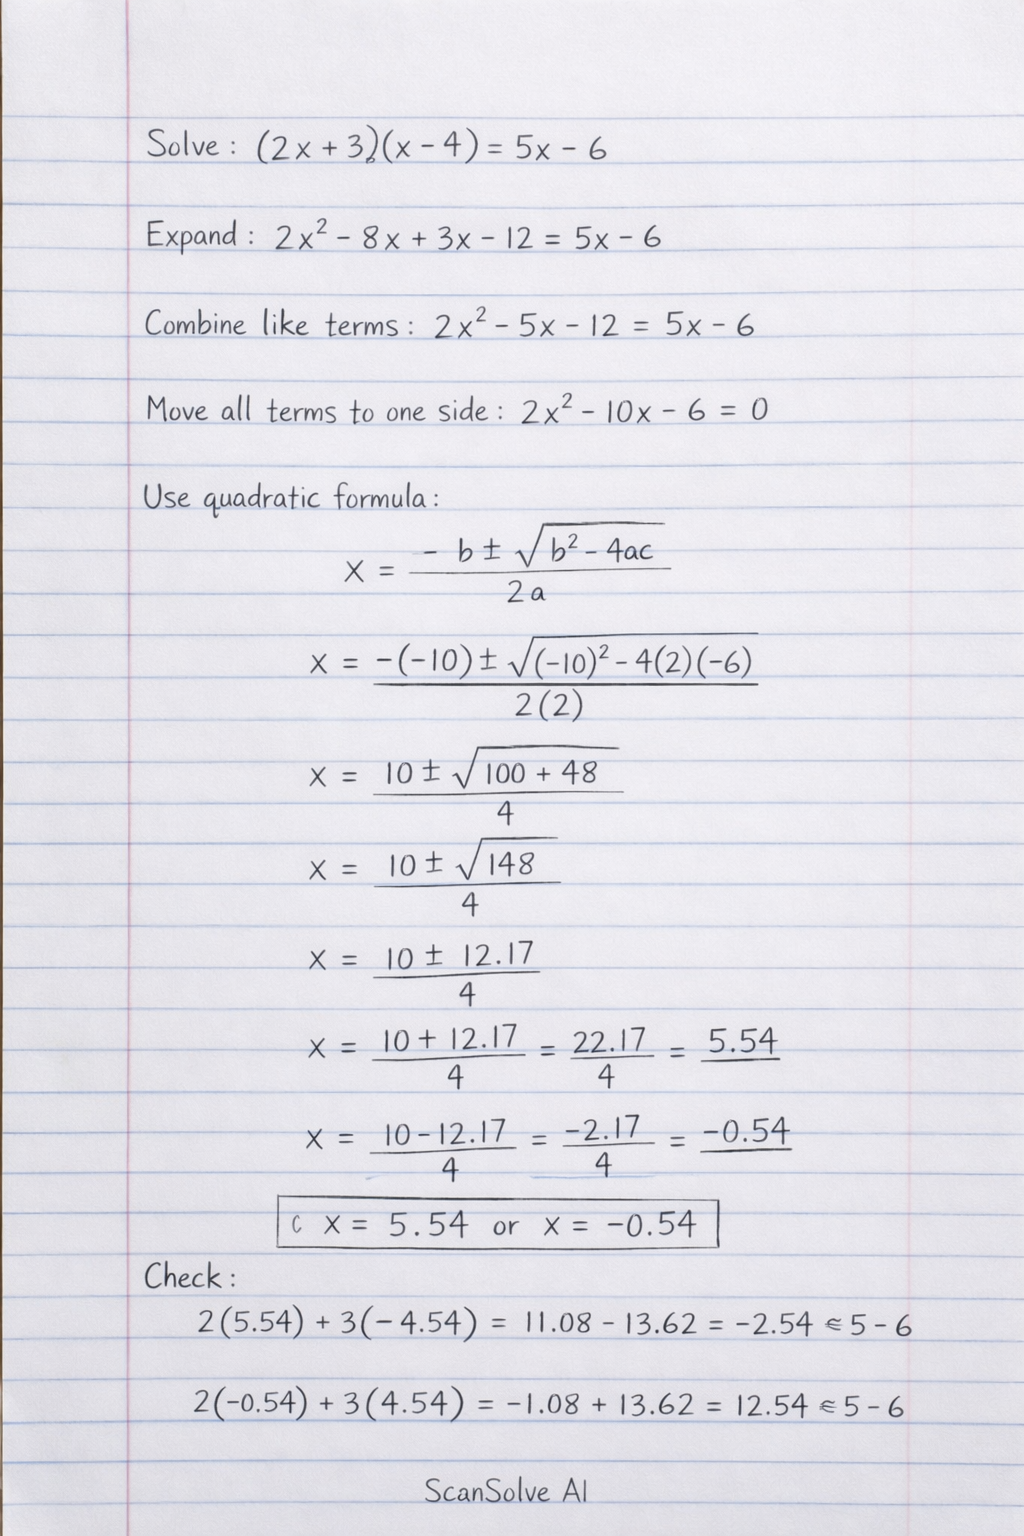 Solve: (2x + 3)(x - 4) = 5x - 6
Expand: 2x² - 8x + 3x - 12 = 5x - 6
Combine like terms: 2x² - 5x - 12 = 5x - 6
Move all terms to one side: 2x² - 10x - 6 = 0
Use quadratic formula:
x = (- b ± √(b² - 4ac)) / 2a
x = (-(-10) ± √((-10)² - 4(2)(-6))) / 2(2)
x = (10 ± √(100 + 48)) / 4
x = (10 ± √148) / 4
x = (10 ± 12.17) / 4
x = (10 + 12.17) / 4 = 22.17 / 4 = 5.54
x = (10 - 12.17) / 4 = -2.17 / 4 = -0.54
c x = 5.54 or x = -0.54
Check:
2(5.54) + 3(-4.54) = 11.08 - 13.62 = -2.54 ∈ 5 - 6
2(-0.54) + 3(4.54) = -1.08 + 13.62 = 12.54 ∈ 5 - 6
ScanSolve AI